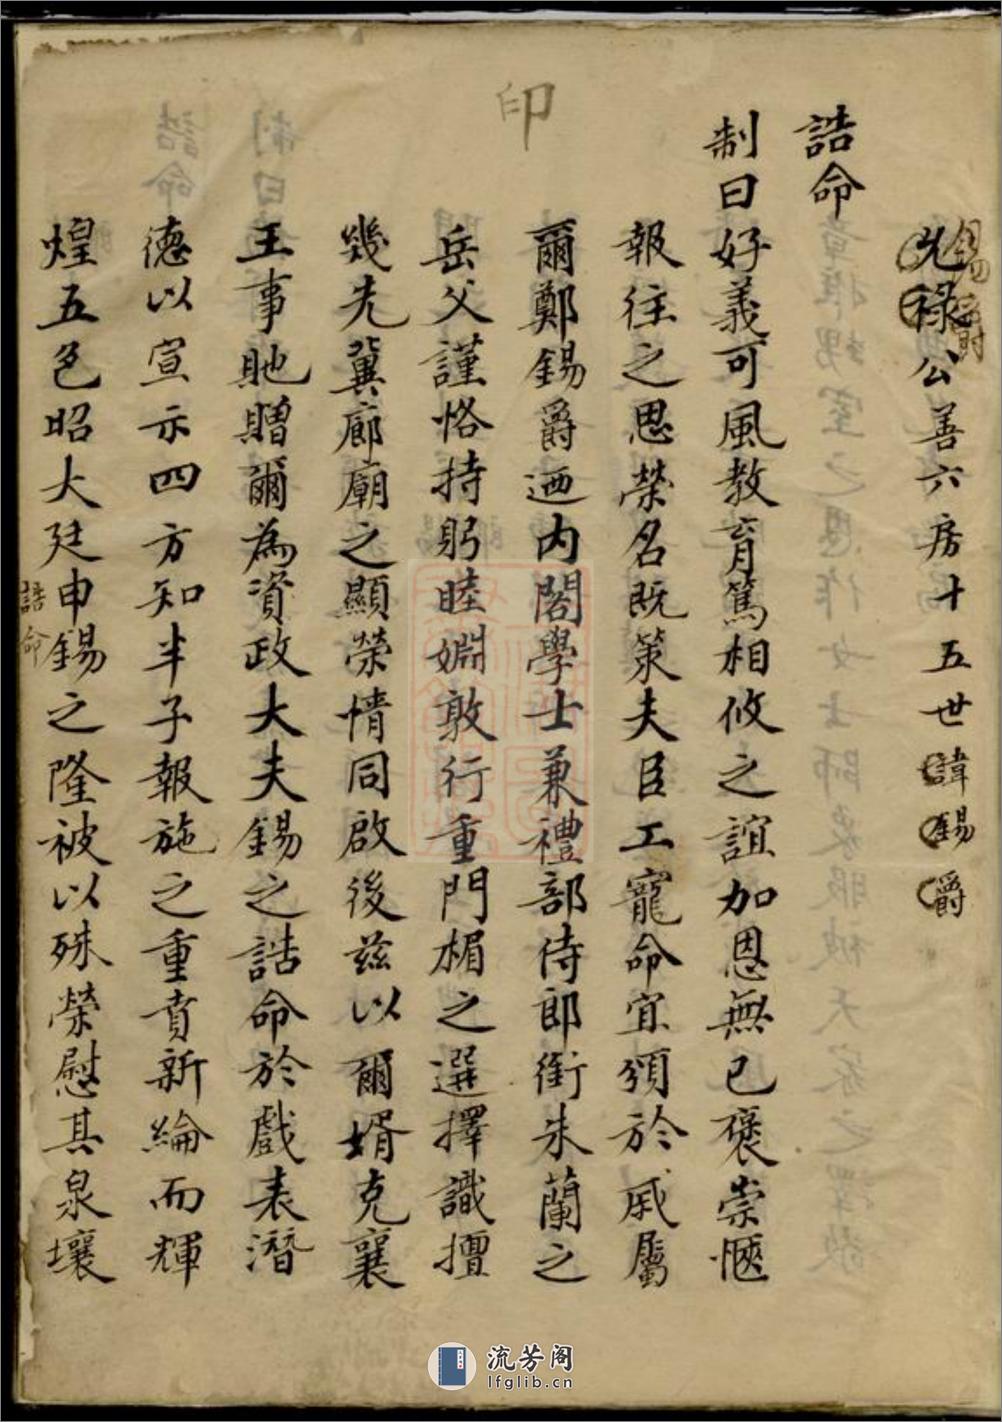 印
錫爵
光祿公善六房十五世諱錫爵
誥命
制曰好義可風教育篤相攸之誼加恩無已褒崇愜
報往之思榮名既策夫臣工寵命宜頒於戚屬
爾鄭錫爵迺内閣學士兼禮部侍郎銜朱蘭之
岳父謹恪持躬睦婣敦行重門楣之選擇識擅
幾先冀廊廟之顯榮情同啟後兹以爾婿克襄
王事貤贈爾為資政大夫錫之誥命於戲表潛
德以宣示四方知半子報施之重賁新綸而輝
煌五色昭大廷申錫之隆被以殊榮慰其泉壤
誥命
流芳阁
lfglib.cn